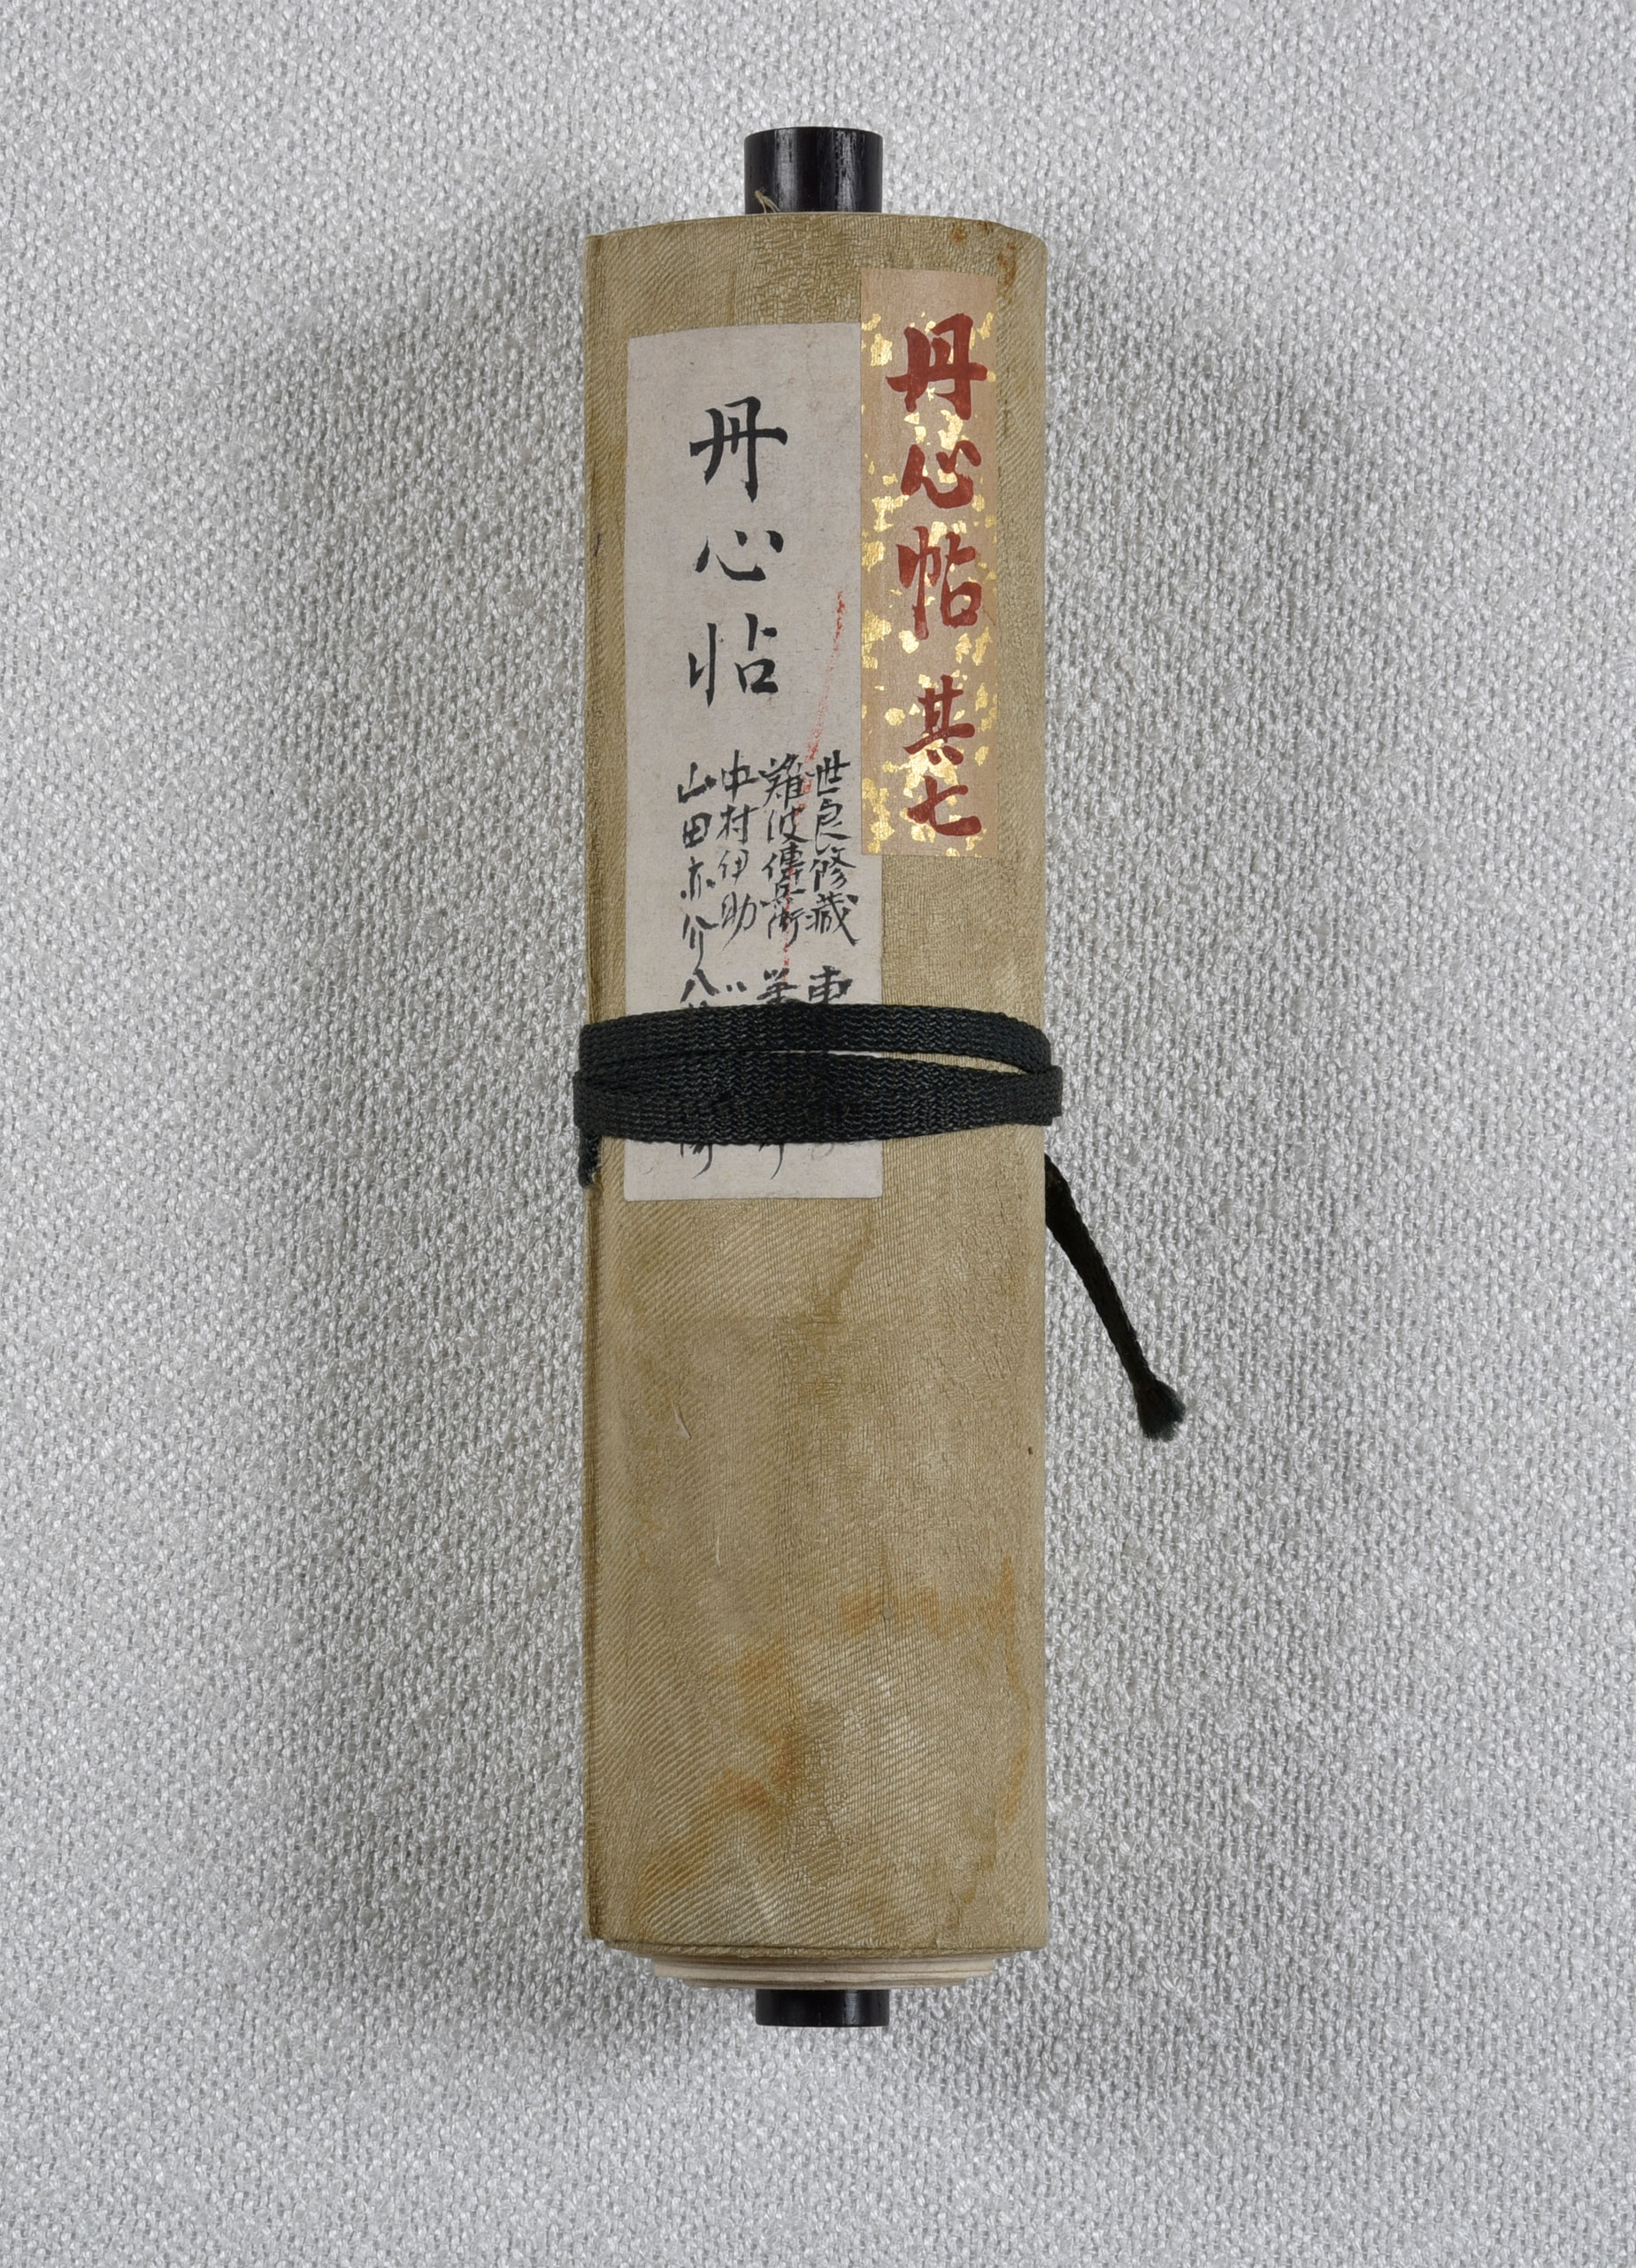 丹心帖 其七
丹心帖
世良修蔵 東
難波傳兵衛
中村伊助
山田亦介 八